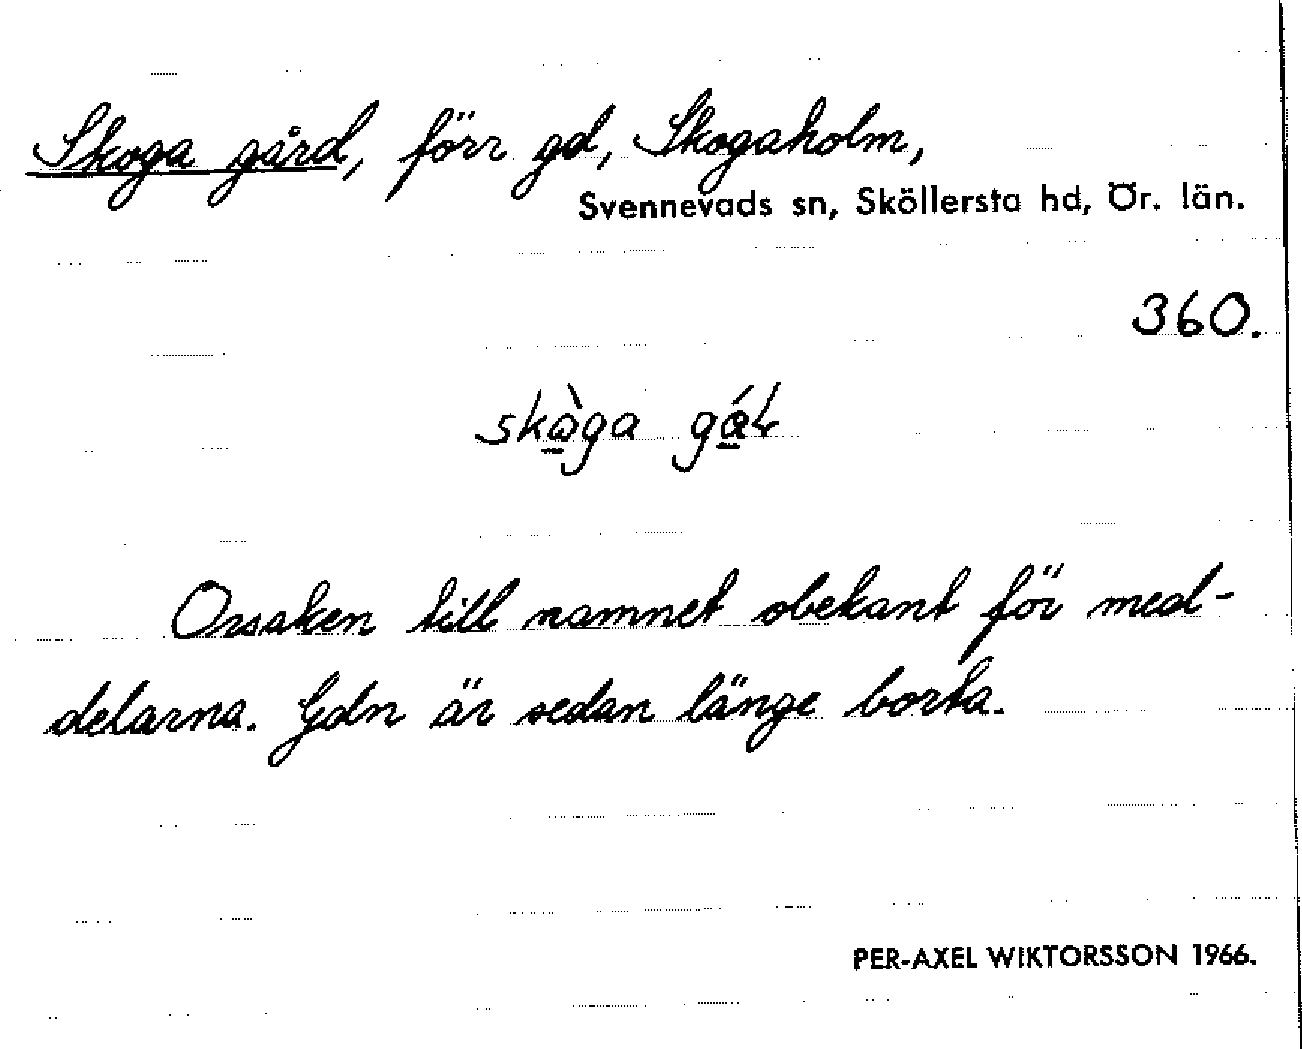 Skoga gård, förr gd, Skogaholm,
Svennevads sn, Sköllersta hd, Ör. län.
360.
skàga
Orsaken till namnet obekant för med-
delarna. Gdn är sedan länge borta.
PER-AXEL WIKTORSSON 1966.